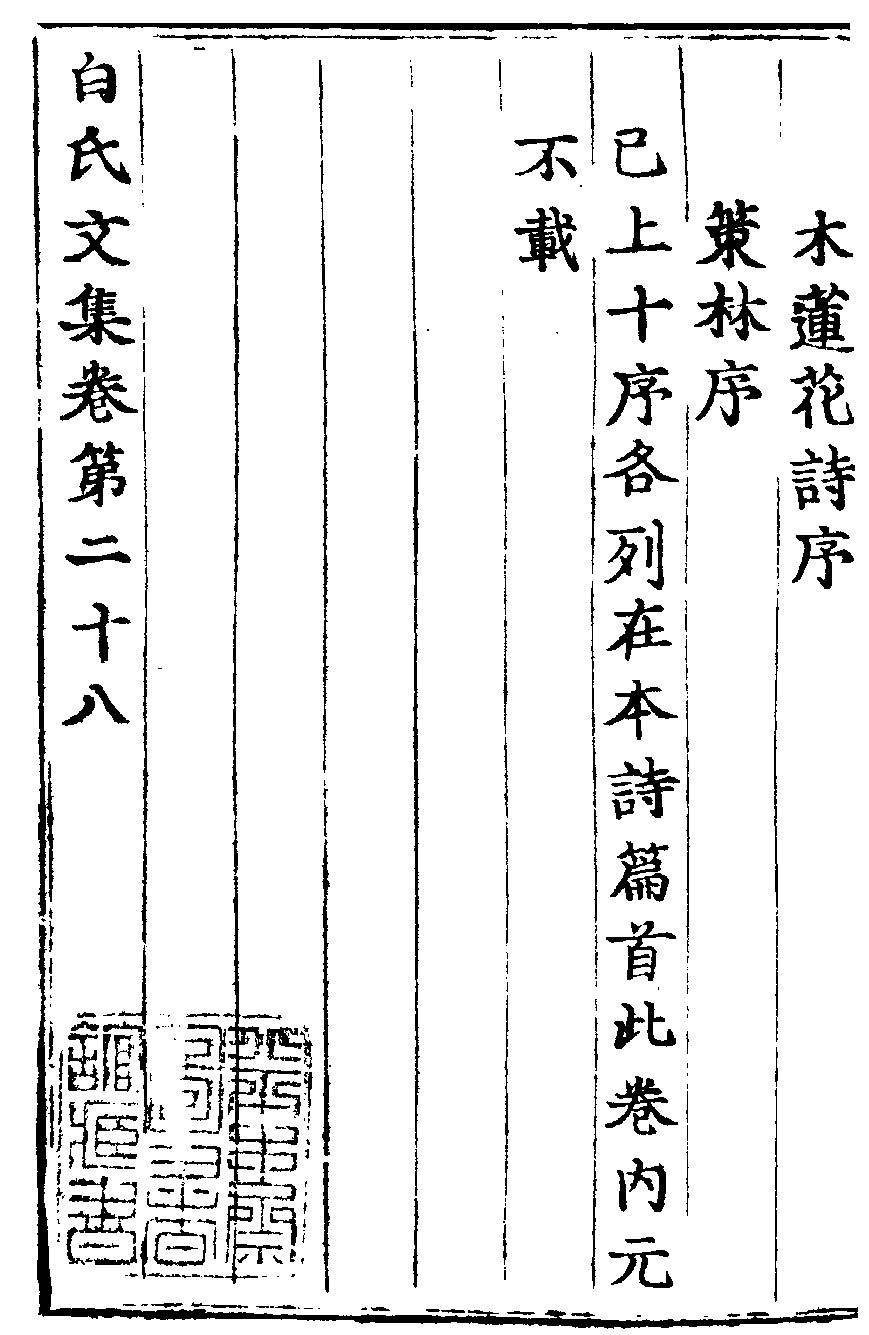 木蓮花詩序
策林序
已上十序各列在本詩篇首此卷内元
不載
白氏文集卷第二十八